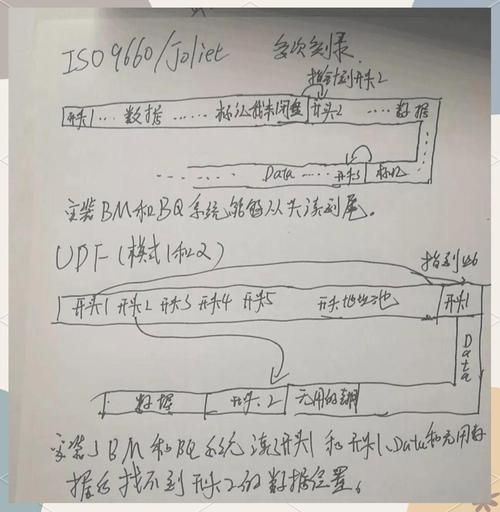 ISO 9660/Joliet 多次刻录.
指针到开头2
开头1 ... 数据 ...... 标记我未闭盘 开头2 .... 数据
Data ..... 开头3 标记2
安装BM和BQ系统能够从头读到尾.
UDF (模式1和2)
指到
开头1 开头2 开头3 开头4 开头5 开头地址池 开头1
Data
数据 开头2 无用的
安装了BM和BQ系统读开头1和开头1、Data和无用数
据后找不到开头2的数据位置。